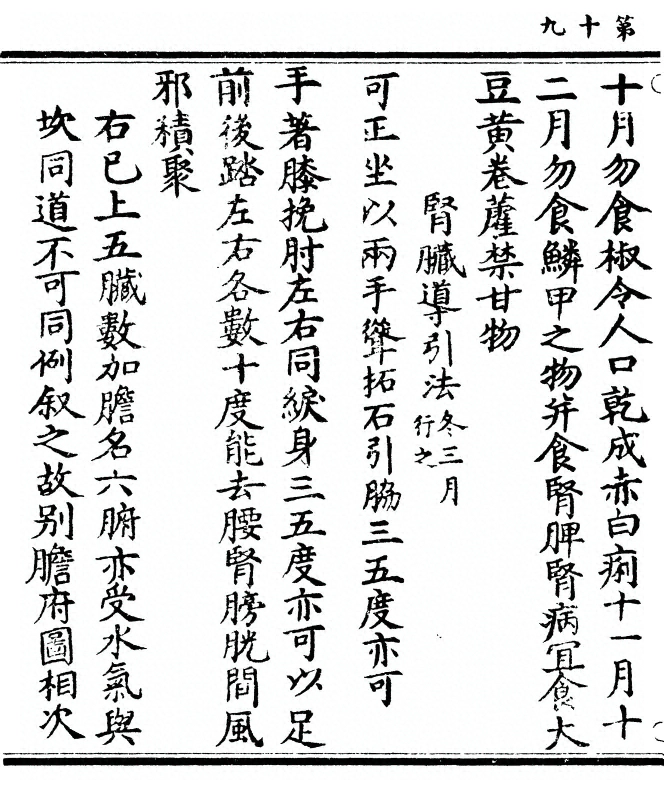 第十九
十月勿食椒令人口乾成赤白痢十一月十
二月勿食鱗甲之物并食腎脾腎病宜食大
豆黃卷藿禁甘物
腎臟導引法冬三月行之
可正坐以兩手聳拓石引脇三五度亦可
手著膝挽肘左右同綟身三五度亦可以足
前後踏左右各數十度能去腰腎膀胱間風
邪積聚
右已上五臟數加膽名六腑亦受水氣與
坎同道不可同例叙之故别膽府圖相次